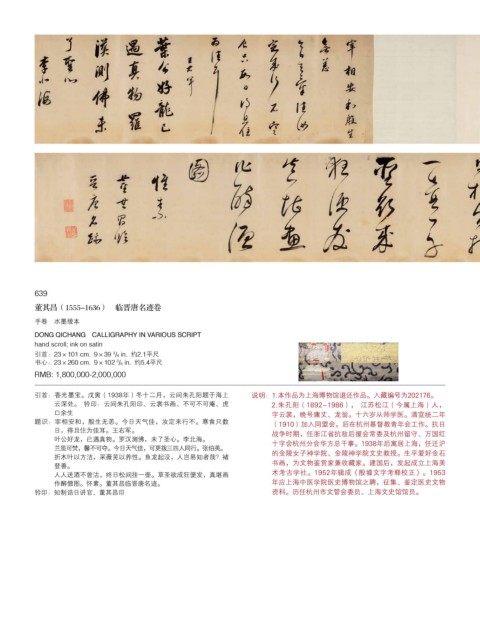 宰相安和殷生
無恙
葉公好龍已
遇真物羅
漢測佛未
了聖心
李北海
狂便發
真堪畫
作醉僧
圖
懷素
董其昌臨
晉唐名跡
639
董其昌（1555–1636） 临晋唐名迹卷
手卷 水墨绫本
DONG QICHANG CALLIGRAPHY IN VARIOUS SCRIPT
hand scroll; ink on satin
引首：23 × 101 cm. 9 × 39 3/4 in. 约2.1平尺
书心：23 × 260 cm. 9 × 102 3/8 in. 约5.4平尺
RMB: 1,800,000-2,000,000
引首：香光墨宝。戊寅（1938年）冬十二月，云间朱孔阳题于海上
云深处。 钤印：云间朱孔阳印、云裳书画、不可不可庵、虎
口余生
题识：宰相安和，殷生无恙。今日天气佳，汝定来行不。寒食只数
日，得且住为佳耳。王右军。
叶公好龙，已遇真物。罗汉测佛，未了圣心。李北海。
兰虽可焚，馨不可夺。今日天气佳，可更拔三四人同行。张伯英。
折木叶以方洁，采薇芜以养性。鱼龙起没，人岂易知者哉？褚
登善。
人人送酒不曾沽，终日松间挂一壶。草圣欲成狂便发，真堪画
作醉僧图。怀素。董其昌临晋唐名迹。
钤印：知制诰日讲官、董其昌印
说明：1.本作品为上海博物馆退还作品。入藏编号为202176。
2.朱孔阳（1892–1986）， 江苏松江（今属上海）人，
字云裳，晚号庸丈、龙翁。十六岁从师学医。清宣统二年
（1910）加入同盟会，后在杭州基督教青年会工作。抗日
战争时期，任浙江省抗敌后援会常委及杭州留守、万国红
十字会杭州分会华方总干事。1938年后寓居上海，任迁沪
的金陵女子神学院、金陵神学院文史教授。生平爱好金石
书画，为文物鉴赏家兼收藏家。建国后，发起成立上海美
术考古学社。1952年辑成《殷墟文字考释校正》。1953
年应上海中医学院医史博物馆之聘，征集、鉴定医史文物
资料。历任杭州市文管会委员、上海文史馆馆员。